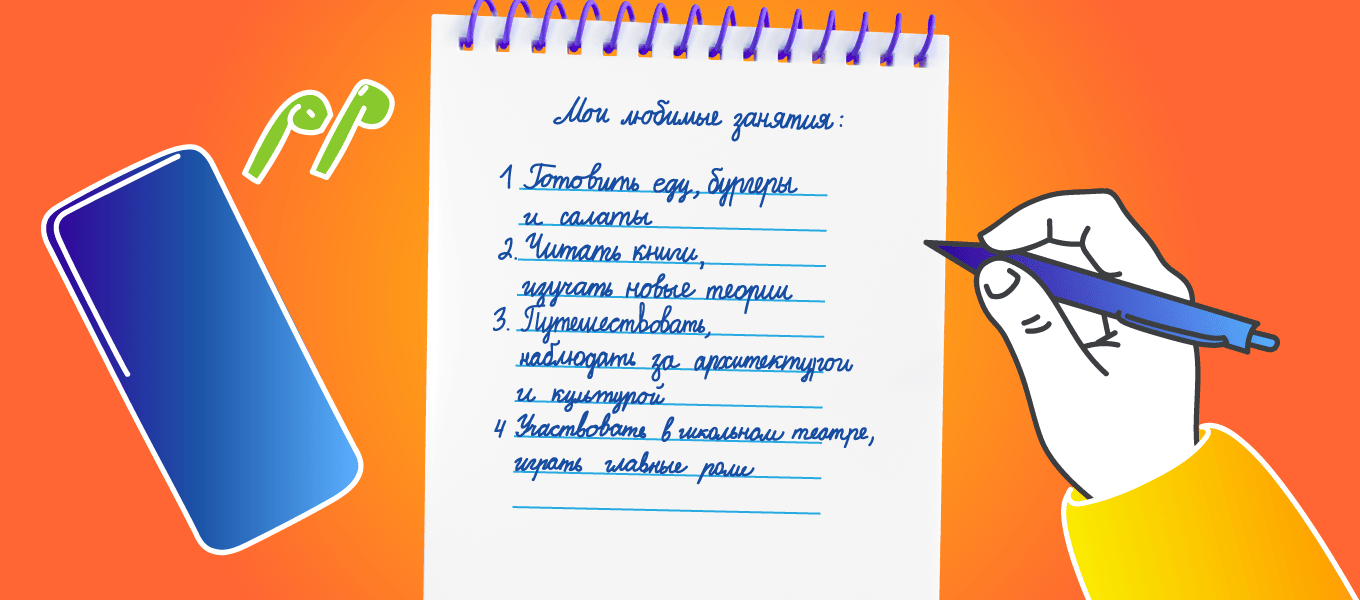 Мои любимые занятия:
1 Готовить еду, бургеры
и салаты
2. Читать книги,
изучать новые теории
3. Путешествовать,
наблюдать за архитектурой
и культурой
4 Участвовать в школьном театре,
играть главные роли